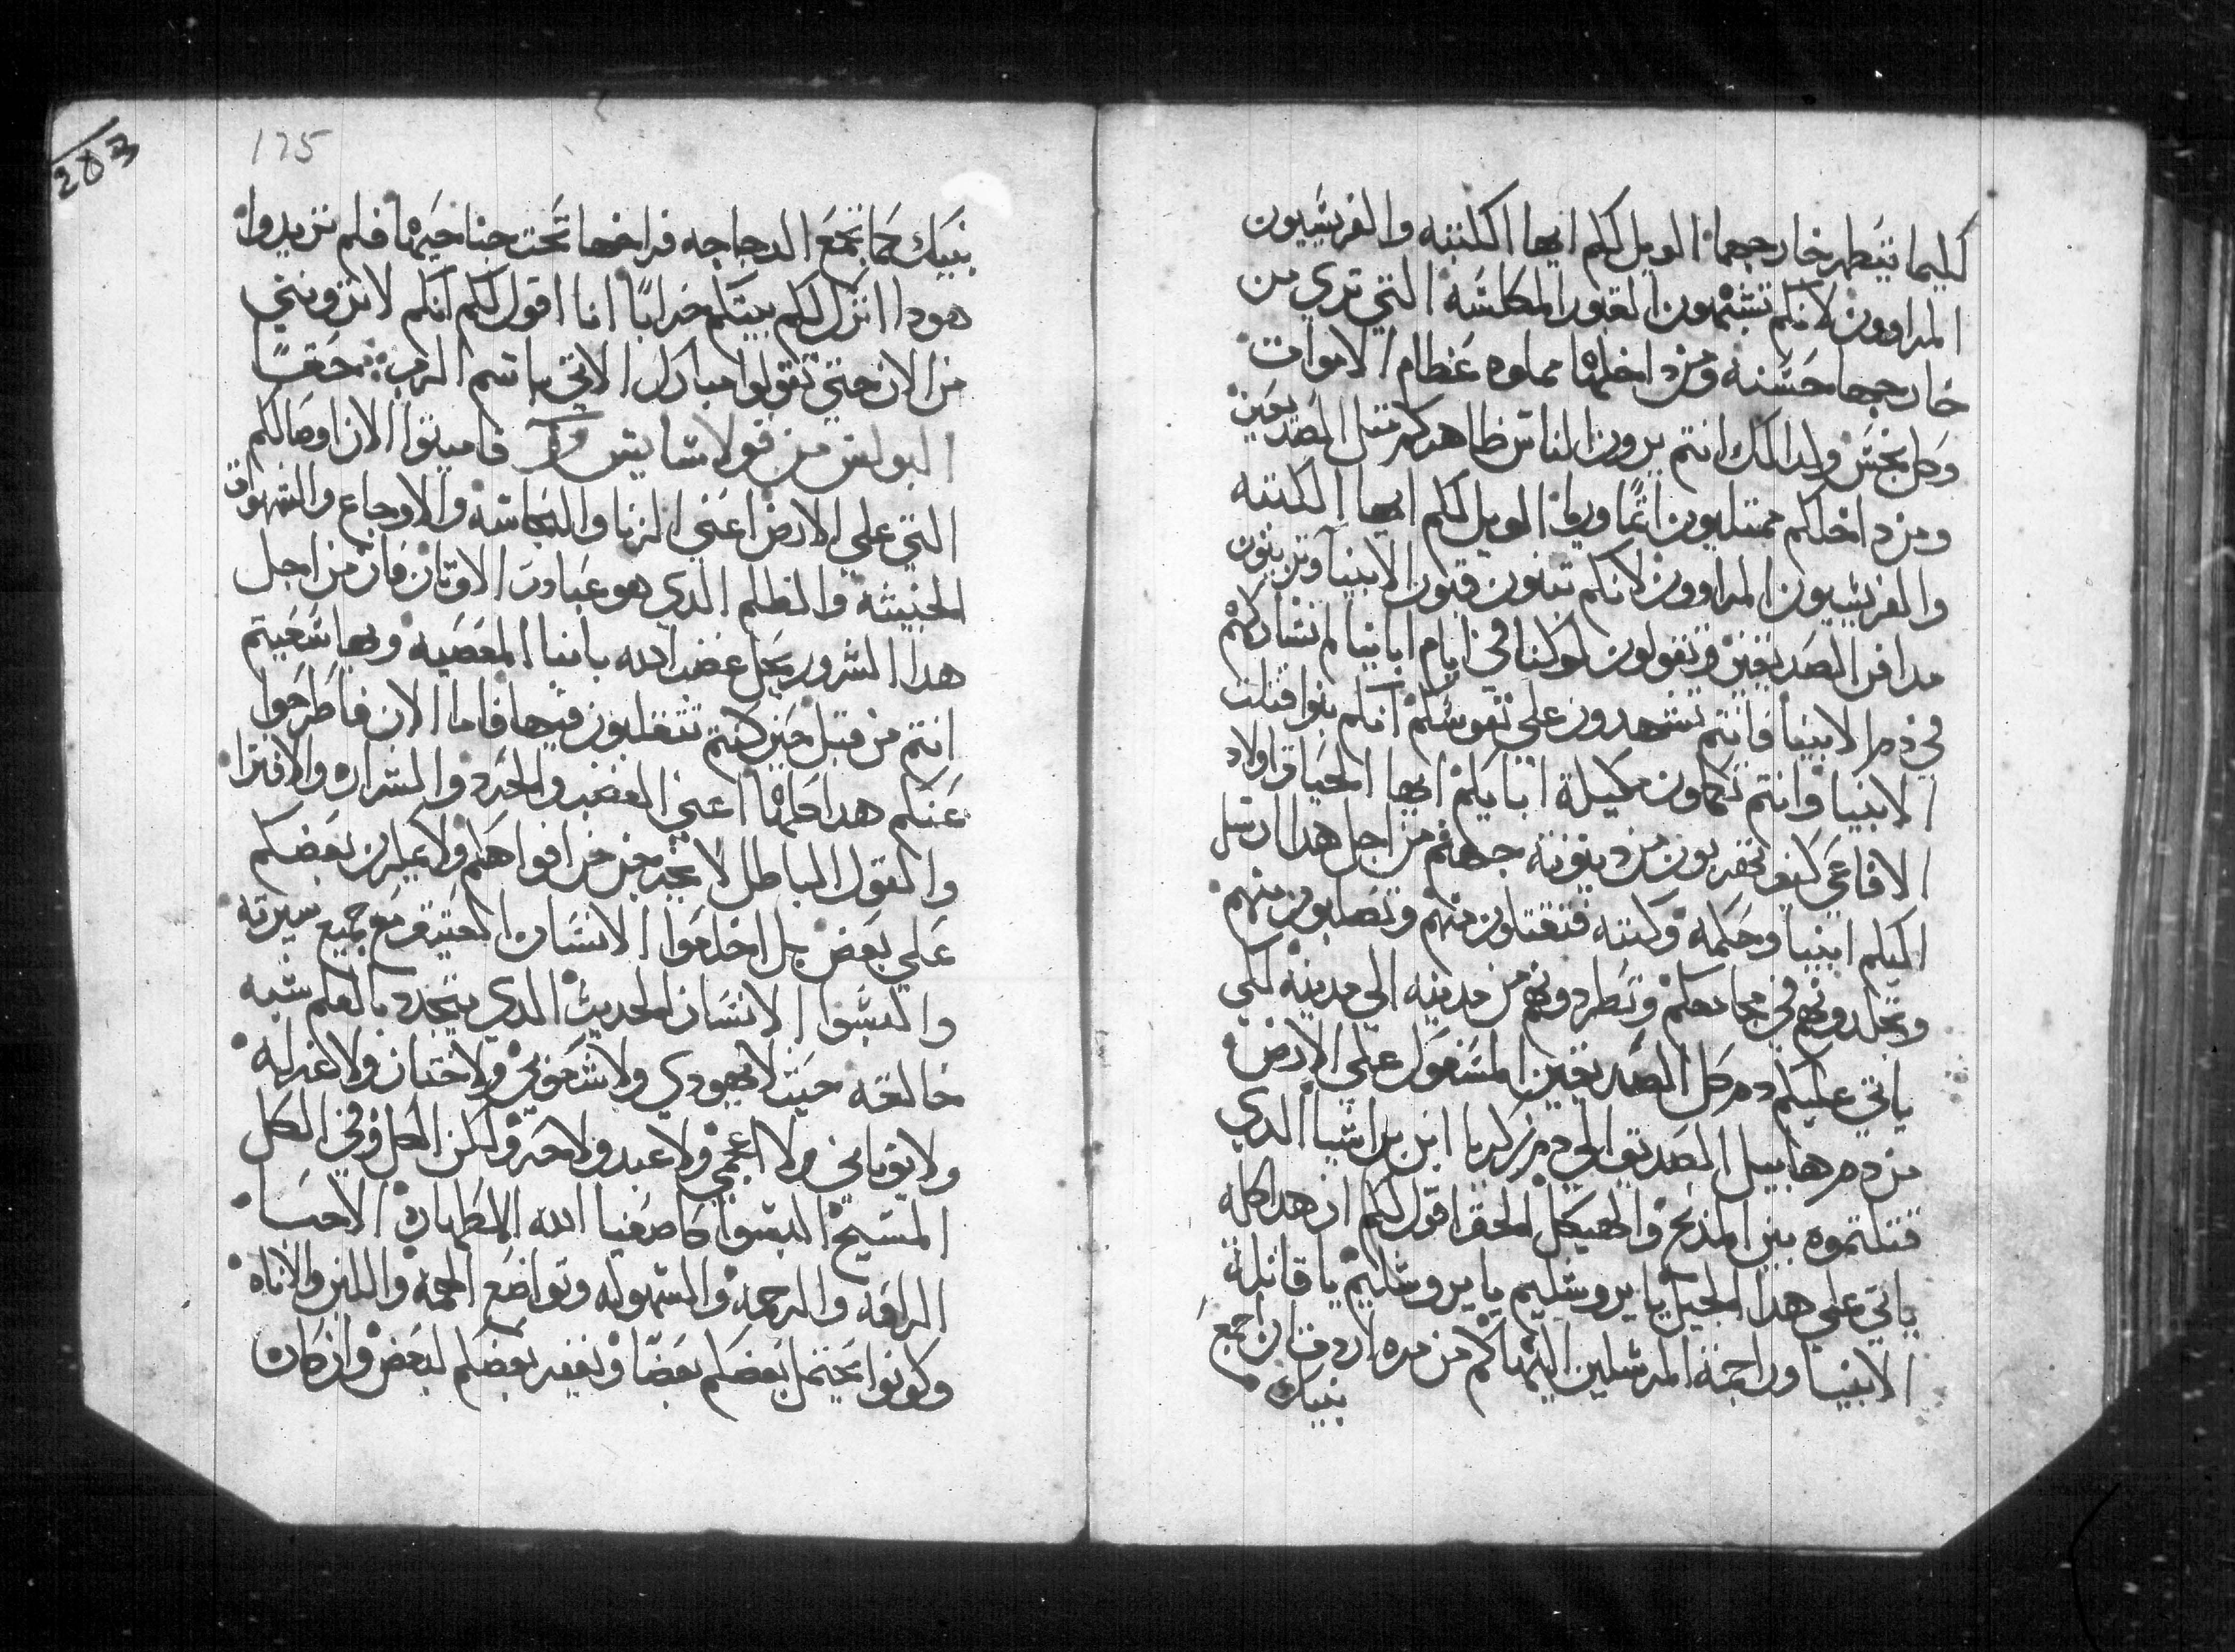 كليما يتطهر خارجهما الويل لكم ايها الكتبه والفريسيون
المراوون لانكم تشبهون القبور المكلسه التي تري من
خارجها حسنه ومن داخلها مملوه عظام الاموات
وكل نجس ولدالك انتم يرون الناس ظاهركم مثل الصديقين
ومن داخلكم ممتليون اثما وريا الويل لكم ايها الكتبه
والفريسيون المراوون لانكم تبنون قبور الانبيا وتزينون
مدافن الصديقين وتقولون لو كنا في ايام اباينا لم نشاركهم
في دم الانبيا فانتم تشهدون علي نفوسكم انكم بنوا قتلت
الانبيا وانتم تكملون مكيلة ابايكم ايها الحياة اولاد
الافاعي كيف تهربون من دينونة جهنم من اجل هدا ارسل
اليكم انبيا وحكمه وكتبه فتقتلون منهم وتصلبون منهم
وتجلدونهم في مجامعكم وتطردونهم من مدينه الي مدينه لكي
ياتي عليكم دم كل الصديقين المسفوك علي الارض
من دم هابيل الصديق الي دم زكريا ابن براشيا الدي
قتلتموه بين المذبح والهيكل الحق اقول لكم ان هدا كله
ياتي علي هدا الجيل يا يروشليم يا يروشليم يا قاتلة
الانبيا وراجمة المرسلين اليها كم من مره اردت ان اجمع
بنيك
175
283
بنيك كما تجمع الدجاجه فراخها تحت جناحيها فلم تريدوا
هودا اترك لكم بيتكم خرابا انا اقول لكم انكم لا تروني
من الان حتي تقولوا مبارك الاتي باسم الرب حقا
البولس من قولاسايس فاميتوا الان اوصالكم
التي علي الارض اعني الزنا والنجاسه والاوجاع والشهوات
الخبيثه والظلم الدي هو عبادت الاوتان فان من اجل
هدا الشرور يحل غضب الله بابنا المعصيه وبها سعيتم
انتم من قبل حين كنتم تتقلبون فيها فاما الان فاطرحوا
عنكم هدا كلها اعني الغضب والحرد والشراره والافترا
والقول الباطل لا يخرجن من افواهكم ولا يكذبن بعضكم
علي بعض بل اخلعوا الانسان العتيق مع جميع سيرته
والبسوا الانسان الحديث الدي يتجدد بالعلم شبه
خالقه حيث لا يهودي ولا شعوبي ولا ختان ولا غرله
ولا يوناني ولا اعجمي ولا عبد ولا حر ولكن الكل وفي الكل
المسيح البسوا كاصفيا الله الاطهار الاحبا
الرافه والرحمه والسهوله وتواضع الهمه واللين والاناه
وكونوا يحتمل بعضكم بعضا ويغفر بعضكم لبعض وان كان